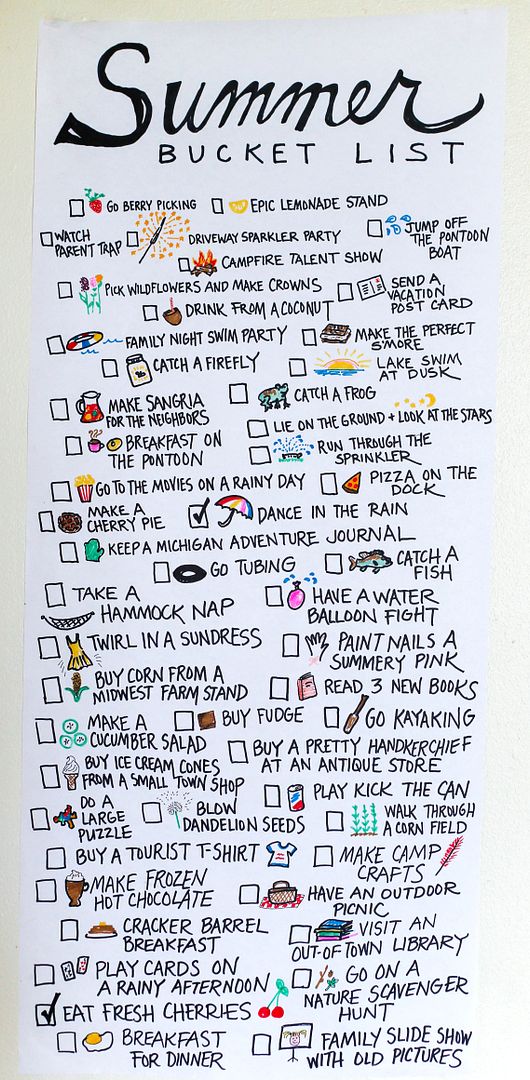 Summer
BUCKET LIST
GO BERRY PICKING
EPIC LEMONADE STAND
WATCH
PARENT TRAP
DRIVEWAY SPARKLER PARTY
JUMP OFF
THE PONTOON
BOAT
CAMPFIRE TALENT SHOW
PICK WILDFLOWERS AND MAKE CROWNS
SEND A
VACATION
POST CARD
DRINK FROM A COCONUT
FAMILY NIGHT SWIM PARTY
MAKE THE PERFECT
S'MORE
CATCH A FIREFLY
LAKE SWIM
AT DUSK
MAKE SANGRIA
FOR THE NEIGHBORS
CATCH A FROG
LIE ON THE GROUND + LOOK AT THE STARS
BREAKFAST ON
THE PONTOON
RUN THROUGH THE
SPRINKLER
GO TO THE MOVIES ON A RAINY DAY
PIZZA ON THE
DOCK
MAKE A
CHERRY PIE
DANCE IN THE RAIN
KEEP A MICHIGAN ADVENTURE JOURNAL
GO TUBING
CATCH A
FISH
TAKE A
HAMMOCK NAP
HAVE A WATER
BALLOON FIGHT
TWIRL IN A SUNDRESS
PAINT NAILS A
SUMMERY PINK
BUY CORN FROM A
MIDWEST FARM STAND
READ 3 NEW BOOKS
MAKE A
CUCUMBER SALAD
BUY FUDGE
GO KAYAKING
BUY ICE CREAM CONES
FROM A SMALL TOWN SHOP
BUY A PRETTY HANDKERCHIEF
AT AN ANTIQUE STORE
PLAY KICK THE CAN
DO A
LARGE
PUZZLE
BLOW
DANDELION SEEDS
WALK THROUGH
A CORN FIELD
BUY A TOURIST T-SHIRT
MAKE CAMP
CRAFTS
MAKE FROZEN
HOT CHOCOLATE
HAVE AN OUTDOOR
PICNIC
CRACKER BARREL
BREAKFAST
VISIT AN
OUT-OF-TOWN LIBRARY
PLAY CARDS ON
A RAINY AFTERNOON
GO ON A
NATURE SCAVENGER
HUNT
EAT FRESH CHERRIES
BREAKFAST
FOR DINNER
FAMILY SLIDE SHOW
WITH OLD PICTURES